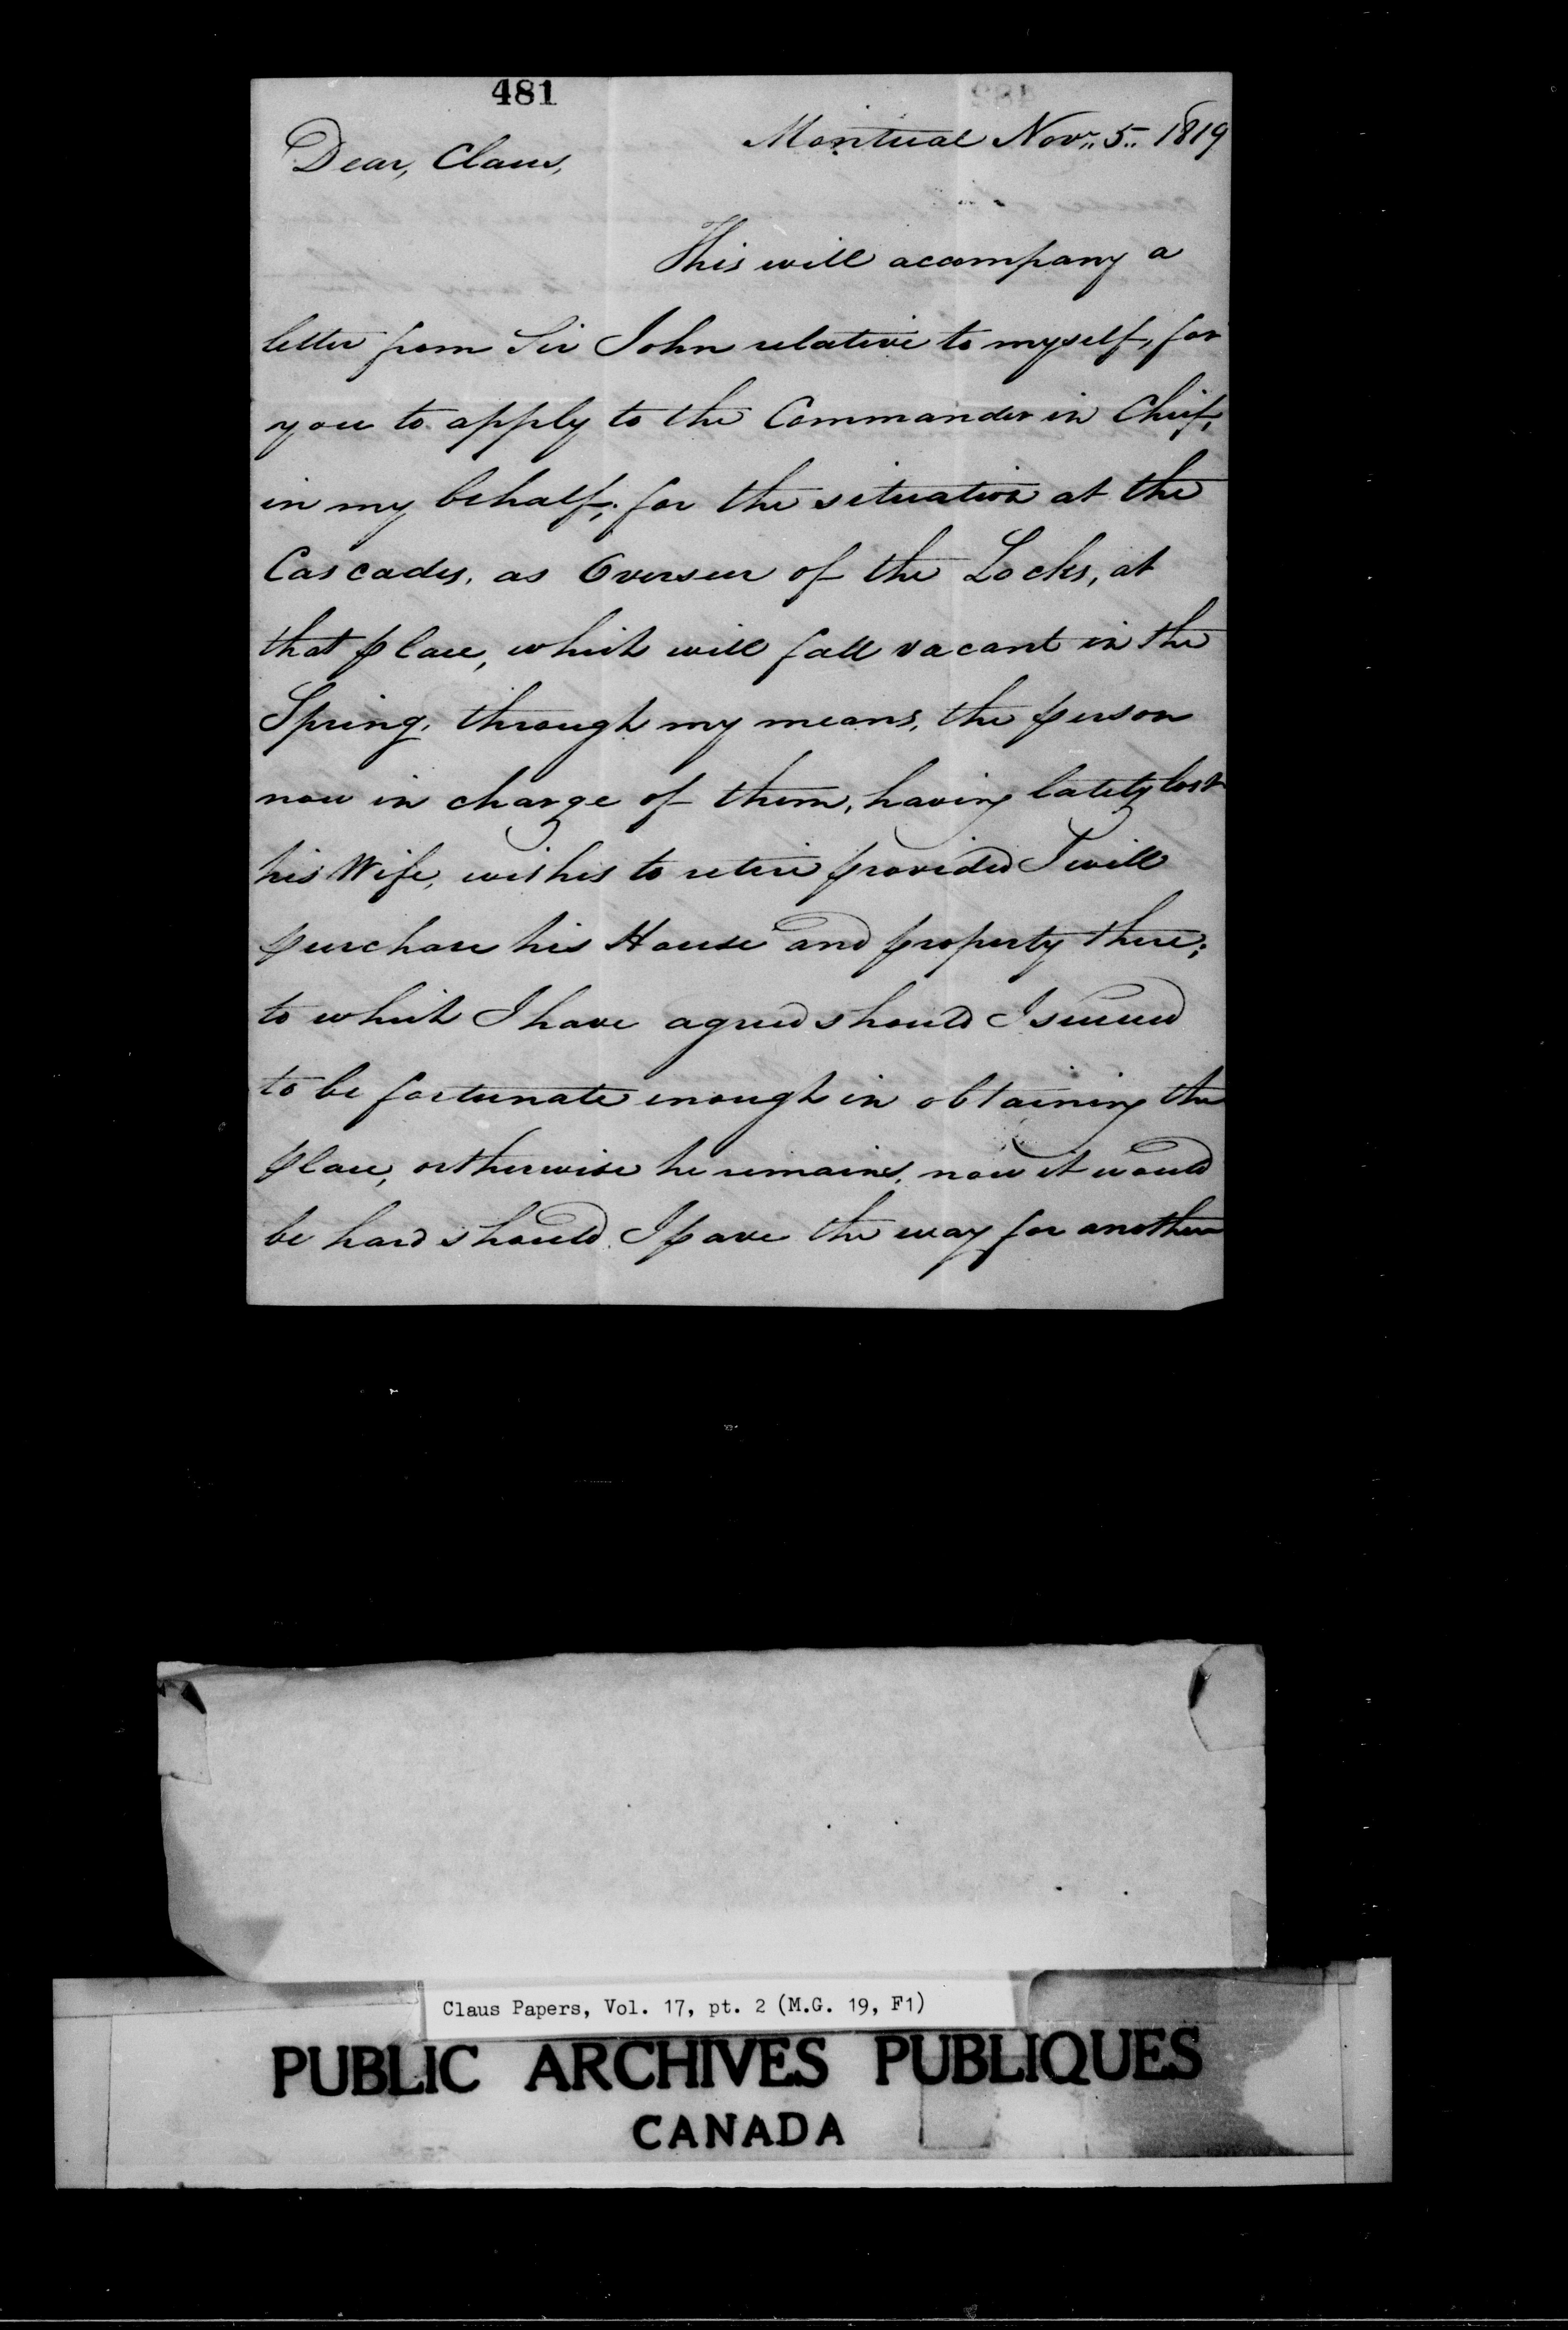 481
Montreal Novr. 5.. 1819
Dear, Claus,
This will acompany a
letter from Sir John relative to myself, for
you to apply to the Commander in Chief,
in my behalf, for the situation at the
Cascades, as Overseer of the Locks, at
that place, which will fall vacant in the
Spring, through my means, the person
now in charge of them, having lately lost
his Wife, wishes to retire provided I will
purchase his House and property there;
to which I have agreed should I succeed
to be fortunate enough in obtaining the
place, ortherwise he remains, now it would
be hard should I pave the way for another
Claus Papers, Vol. 17, pt. 2 (M.G. 19, F1)
PUBLIC ARCHIVES PUBLIQUES
CANADA